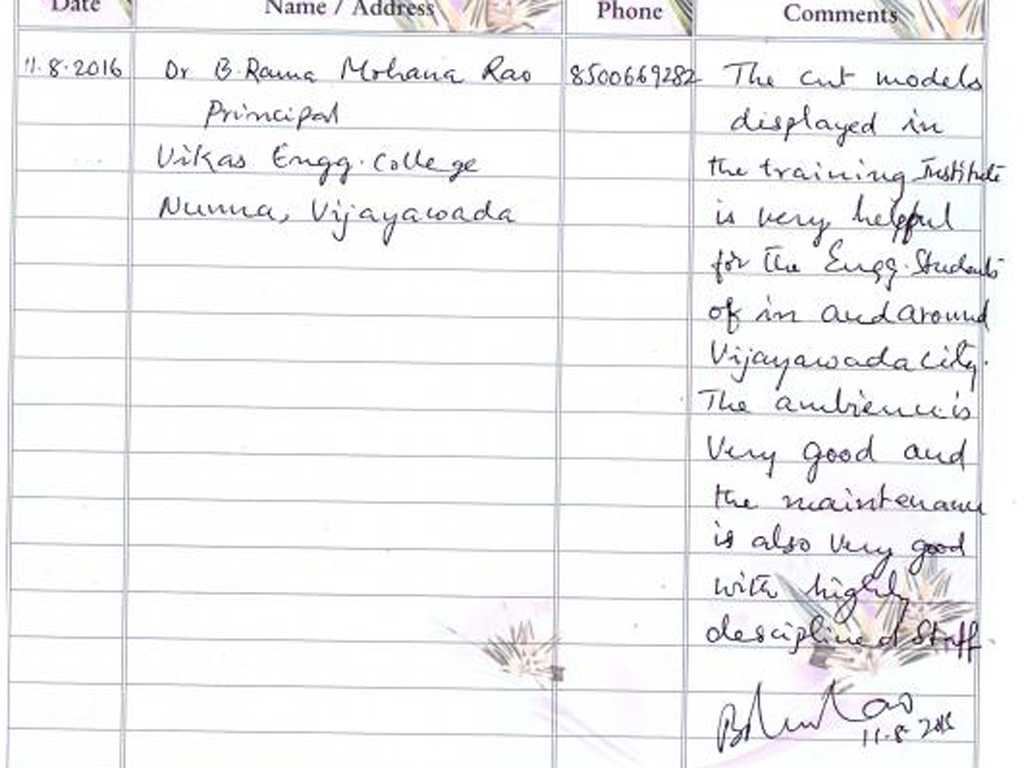 Date Name / Address Phone Comments
11.8.2016 Dr B. Rama Mohana Rao 8500669282 The cut models
Principal displayed in
Vikas Engg. College the training Institute
Nunna, Vijayawada is very helpful
for the Engg. Students
of in and around
Vijayawada city.
The ambience is
Very good and
the maintenance
is also very good
with highly
desciplined Staff
11.8.2016